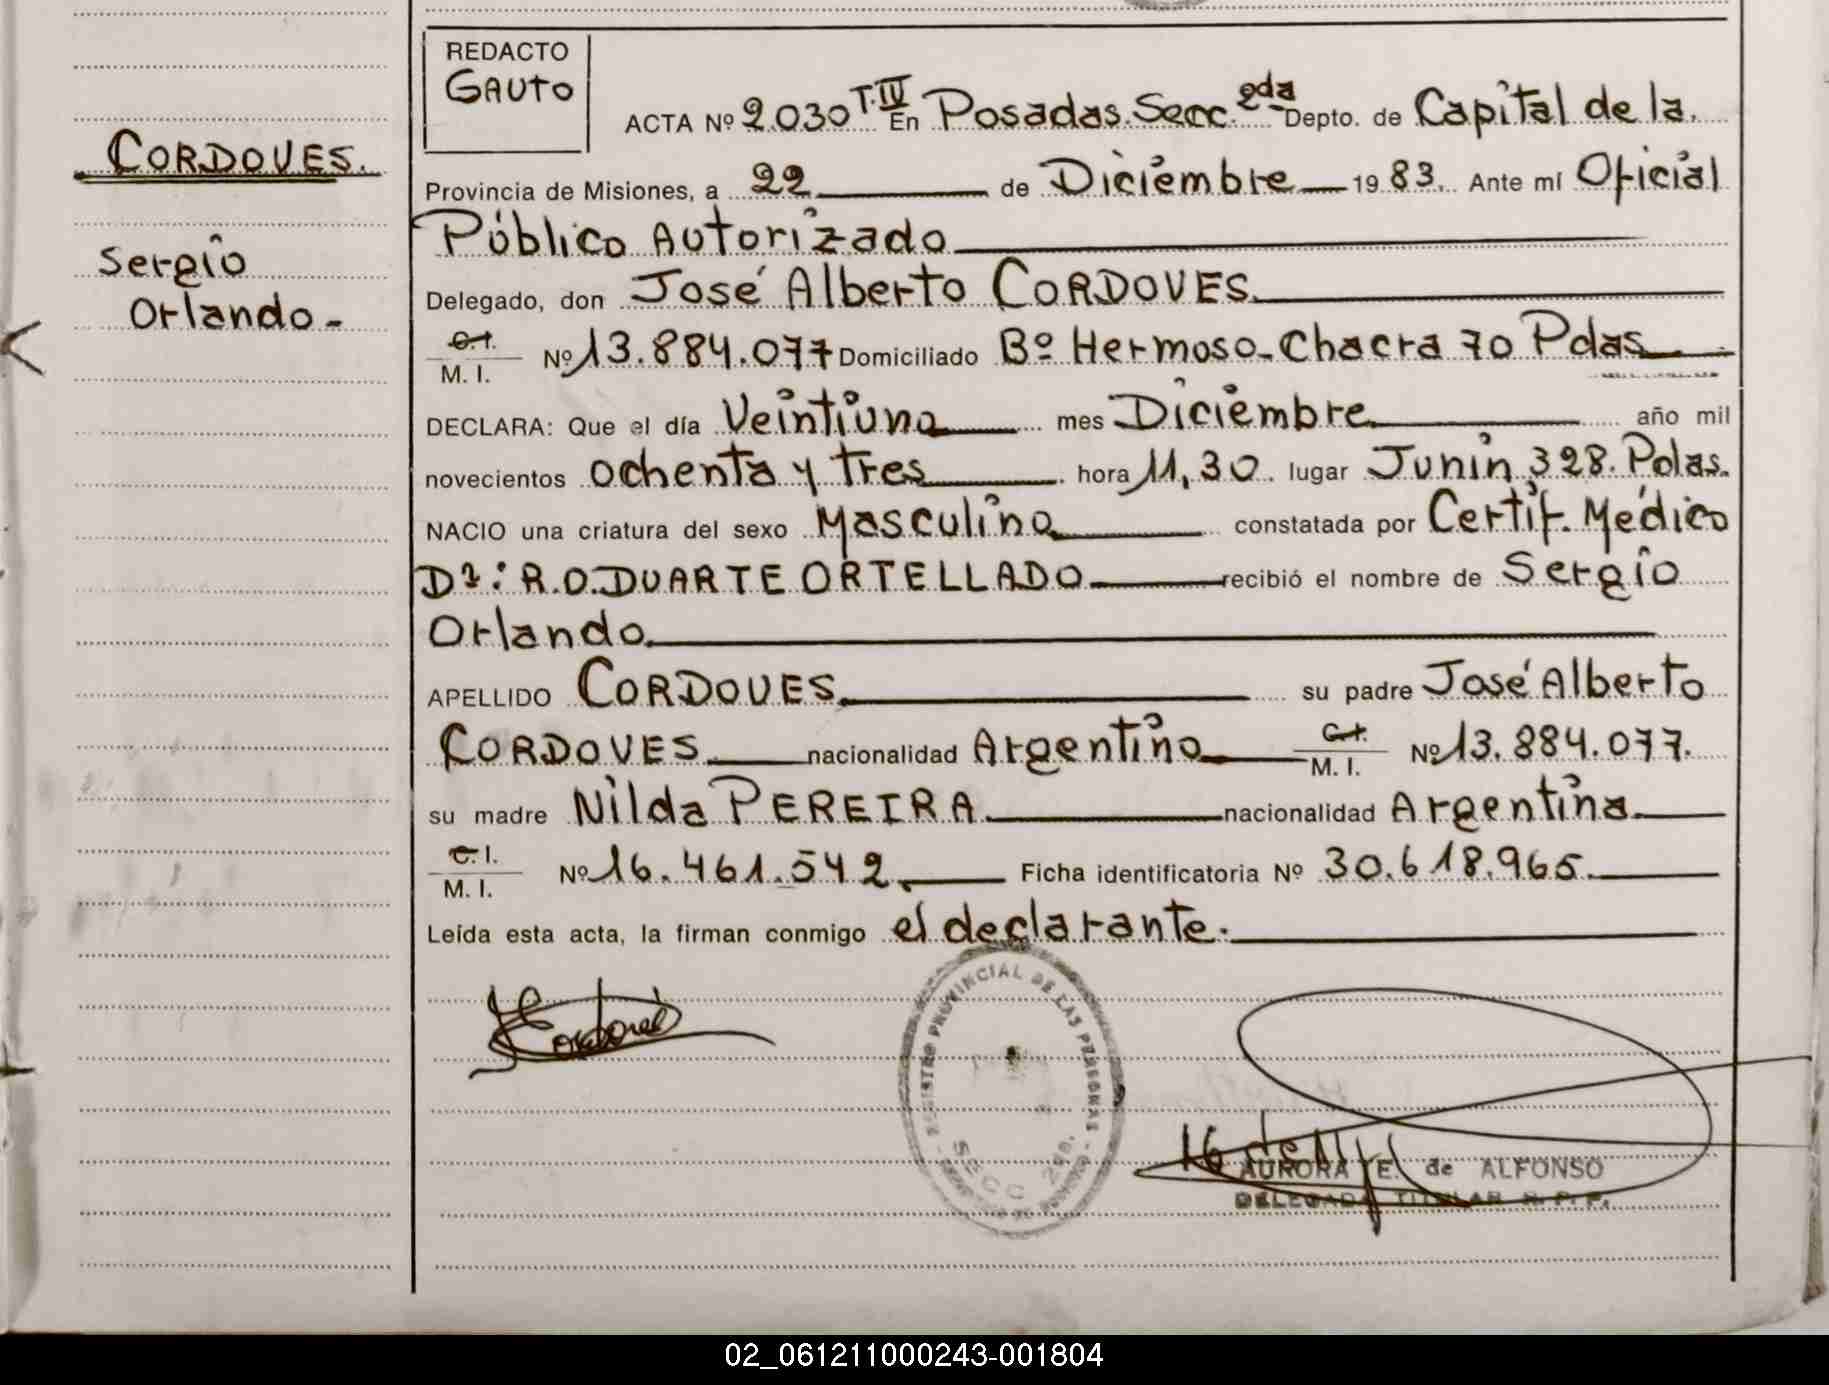 REDACTO
GAUTO
ACTA Nº 2.030 T.IV En Posadas. Secc. 2da Depto. de Capital de la
CORDOVES.
Provincia de Misiones, a 22 de Diciembre 19 83. Ante mí Oficial
Público Autorizado
Sergio
Delegado, don José Alberto CORDOVES.
Orlando-
C.I.
M. I. Nº 13.884.077 Domiciliado Bº Hermoso-Chacra 70 Pdas
DECLARA: Que el día Veintiuno mes Diciembre año mil
novecientos ochenta y tres hora 11,30. lugar Junin 328. Pdas.
NACIO una criatura del sexo Masculino constatada por Certif. Médico
Dr: R.O. DUARTE ORTELLADO recibió el nombre de Sergio
Orlando
APELLIDO CORDOVES. su padre José Alberto
CORDOVES nacionalidad Argentino C.I.
M. I. Nº 13.884.077.
su madre Nilda PEREIRA nacionalidad Argentina.
C.I.
M. I. Nº 16.461.542. Ficha identificatoria Nº 30.618.965.
Leída esta acta, la firman conmigo el declarante.
Cordoves
REGISTRO PROVINCIAL DE LAS PERSONAS
SECC 2da.
AURORA E. de ALFONSO
DELEGADA TITULAR R. P. P.
02_061211000243-001804